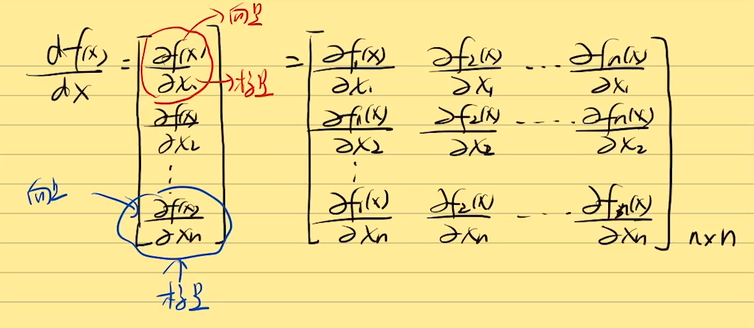 df(x)/dx = [∂f(x)/∂x₁ = [∂f₁(x)/∂x₁ ∂f₂(x)/∂x₁ ... ∂fn(x)/∂x₁
∂f(x)/∂x₂ ∂f₁(x)/∂x₂ ∂f₂(x)/∂x₂ ... ∂fn(x)/∂x₂
⋮ ⋮
∂f(x)/∂xn] ∂f₁(x)/∂xn ∂f₂(x)/∂xn ... ∂fn(x)/∂xn] n×n
向量
标量
向量
标量